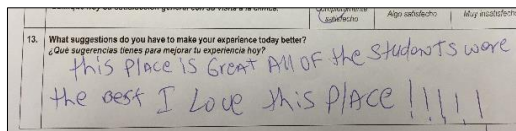 satisfecho Algo satisfecho Muy insatisfecho
13. What suggestions do you have to make your experience today better?
¿Qué sugerencias tienes para mejorar tu experiencia hoy?
this PlACE is GreAT All OF the StudenTS were
the BesT I Love this PlACE !!!!!